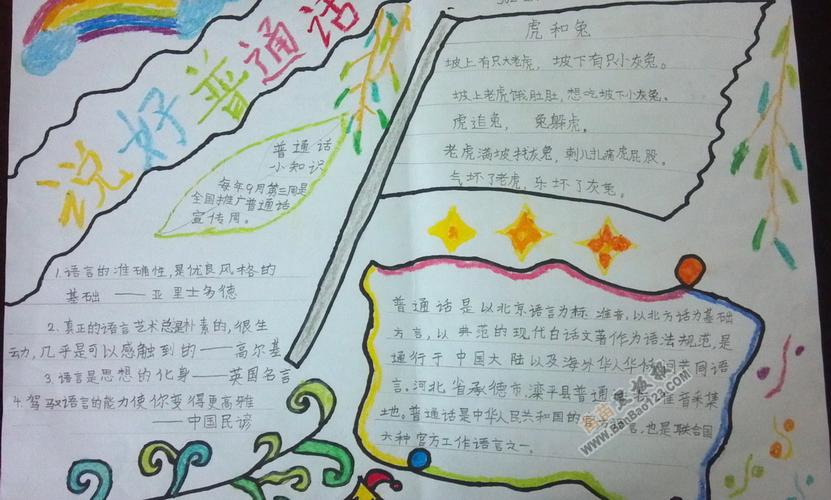 说好普通话
普通话
小知识
每年9月第三周是
全国推广普通话
宣传周。
1.语言的准确性,是优良风格的
基础 ——亚里士多德
2.真正的语言艺术总是朴素的,很生
动,几乎是可以感触到的——高尔基
3.语言是思想的化身——英国名言
4.驾驭语言的能力使你变得更高雅
——中国民谚
虎和兔
坡上有只大老虎, 坡下有只小灰兔。
坡上老虎饿肚肚,想吃坡下小灰兔。
虎追兔, 兔躲虎。
老虎满坡找灰兔,刺儿扎痛虎屁股。
气坏了老虎,乐坏了灰兔。
普通话是以北京语言为标准音,以北方话为基础
方言,以典范的现代白话文著作为语法规范,是
通行于中国大陆以及海外华人华 共同语
言.河北省承德市,滦平县普通 标准音采集
地。普通话是中华人民共和国的 言,也是联合国
六种官方工作语言之一。
www.BanBao123.com